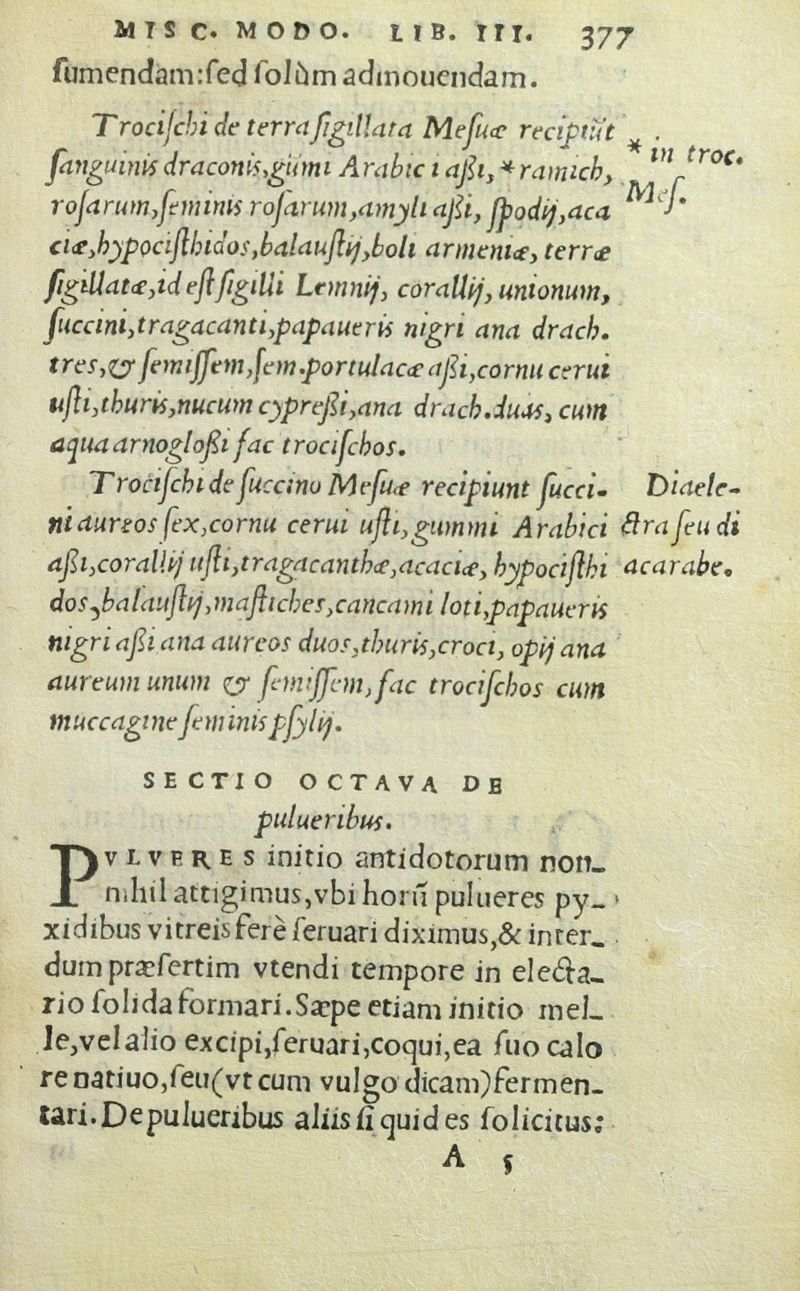 MISC. MODO. LIB. III. 377
ſumendam:ſed ſolùm admouendam.
Trociſchi de terra ſigillata Meſuæ recipiũt
ſanguinis draconis,gũmi Arabici aßi,*ramich,
* in troc.
roſarum,ſeminis roſarum,amyli aßi, ſpodij,aca
Meſ.
ciæ,hypociſthidos,balauſtij,boli armeniæ, terræ
ſigillatæ,id eſt ſigilli Lemnij, corallij, unionum,
ſuccini,tragacanti,papaueris nigri ana drach.
tres,& ſemiſſem,ſem.portulacæ aßi,cornu cerui
uſti,thuris,nucum cypreßi,ana drach.duas, cum
aqua arnogloßi fac trociſchos.
Trociſchi de ſuccino Meſuæ recipiunt ſucci-
Diaele-
ni aureos ſex,cornu cerui uſti,gummi Arabici
ctra ſeu di
aßi,corallij uſti,tragacanthæ,acaciæ, hypociſthi
acarabe.
dos,balauſtij,maſtiches,cancami loti,papaueris
nigri aßi ana aureos duos,thuris,croci, opij ana
aureum unum & ſemiſſem,fac trociſchos cum
muccagine ſeminis pſylij.
SECTIO OCTAVA DE
pulueribus.
PVLVERES initio antidotorum non-
nihil attigimus,vbi horũ pulueres py-
xidibus vitreis ferè ſeruari diximus,& inter-
dum præſertim vtendi tempore in electa-
rio ſolida formari.Sæpe etiam initio mel-
le,vel alio excipi,ſeruari,coqui,ea ſuo calo
re natiuo,ſeu(vt cum vulgo dicam)fermen-
tari.De pulueribus aliis ſi quid es ſolicitus:
A 5